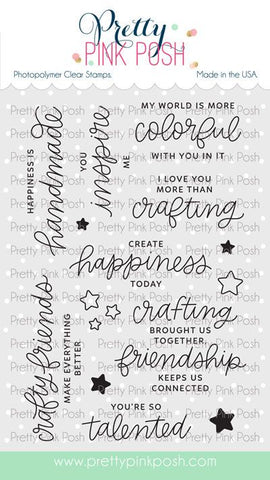 Pretty
PINK POSH
Photopolymer Clear Stamps.
Made in the USA.
HAPPINESS IS
handmade
YOU
inspire
ME
MY WORLD IS MORE
colorful
WITH YOU IN IT
I LOVE YOU
MORE THAN
crafting
CREATE
happiness
TODAY
crafty friends
MAKE EVERYTHING
BETTER
crafting
BROUGHT US
TOGETHER,
friendship
KEEPS US
CONNECTED
YOU'RE SO
talented
www.prettypinkposh.com